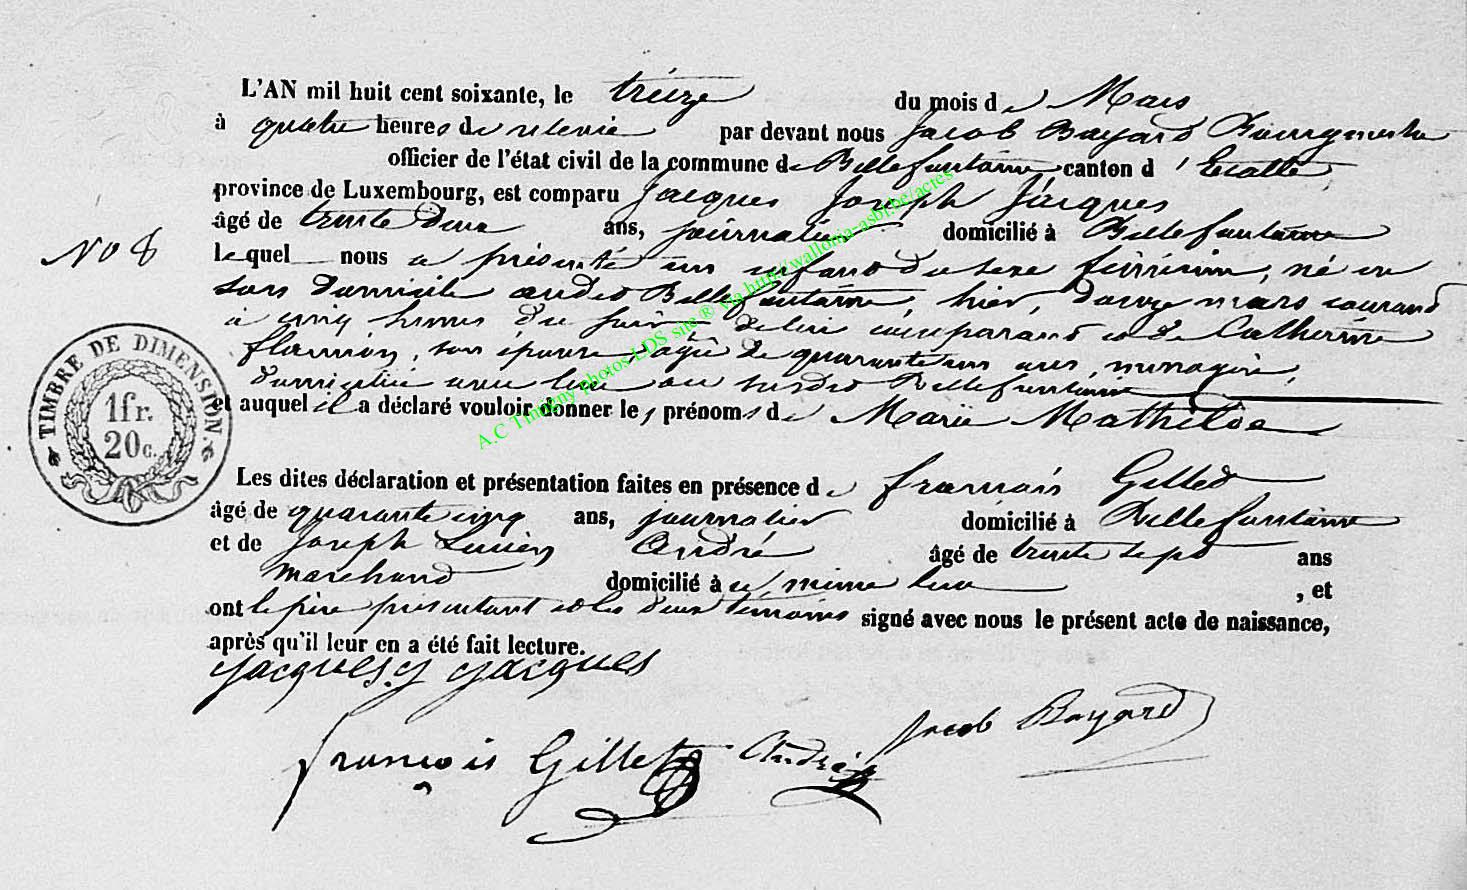 L'AN mil huit cent soixante, le treize du mois de Mars
à quatre heures de relevée par devant nous Jacob Bayard Bourgmestre
officier de l'état civil de la commune de Bellefontaine canton d'Etalle
province de Luxembourg, est comparu Jacques Joseph Jacques
âgé de trente deux ans, journalier domicilié à Bellefontaine
No 8
lequel nous a présenté un enfant du sexe féminin, né en
son domicile audit Bellefontaine, hier, douze mars courant
à cinq heures du soir de lui comparant et de Catherine
flamion, son épouse, agée de quarante un ans, ménagère,
domiciliée avec lui au susdit Bellefontaine
et auquel il a déclaré vouloir donner les prénoms de Marie Mathilde
TIMBRE DE DIMENSION.
1fr.
20c.
Les dites déclaration et présentation faites en présence de françois Gillet
âgé de quarante cinq ans, journalier domicilié à Bellefontaine
et de Joseph Lucien André âgé de trente sept ans
marchand domicilié à même lieu , et
ont le père présentant et les deux témoins signé avec nous le présent acte de naissance,
après qu'il leur en a été fait lecture.
Jacques J Jacques
françois Gillet André Jacob Bayard
A.C Tintigny photos LDS site ® via http://wallonia-asbl.be/actes